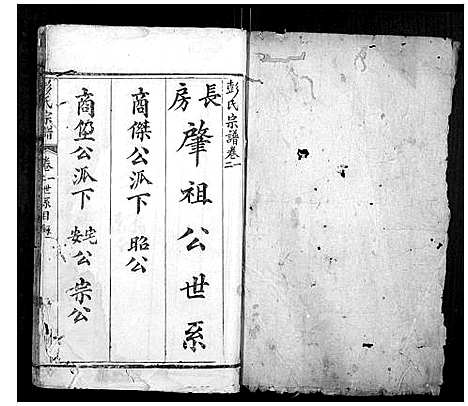 彭氏宗譜卷二
長房 肇祖公世系
商傑公派下 昭公
商垕公派下 宅安公 宗公
彭氏宗譜 卷二 世系目錄